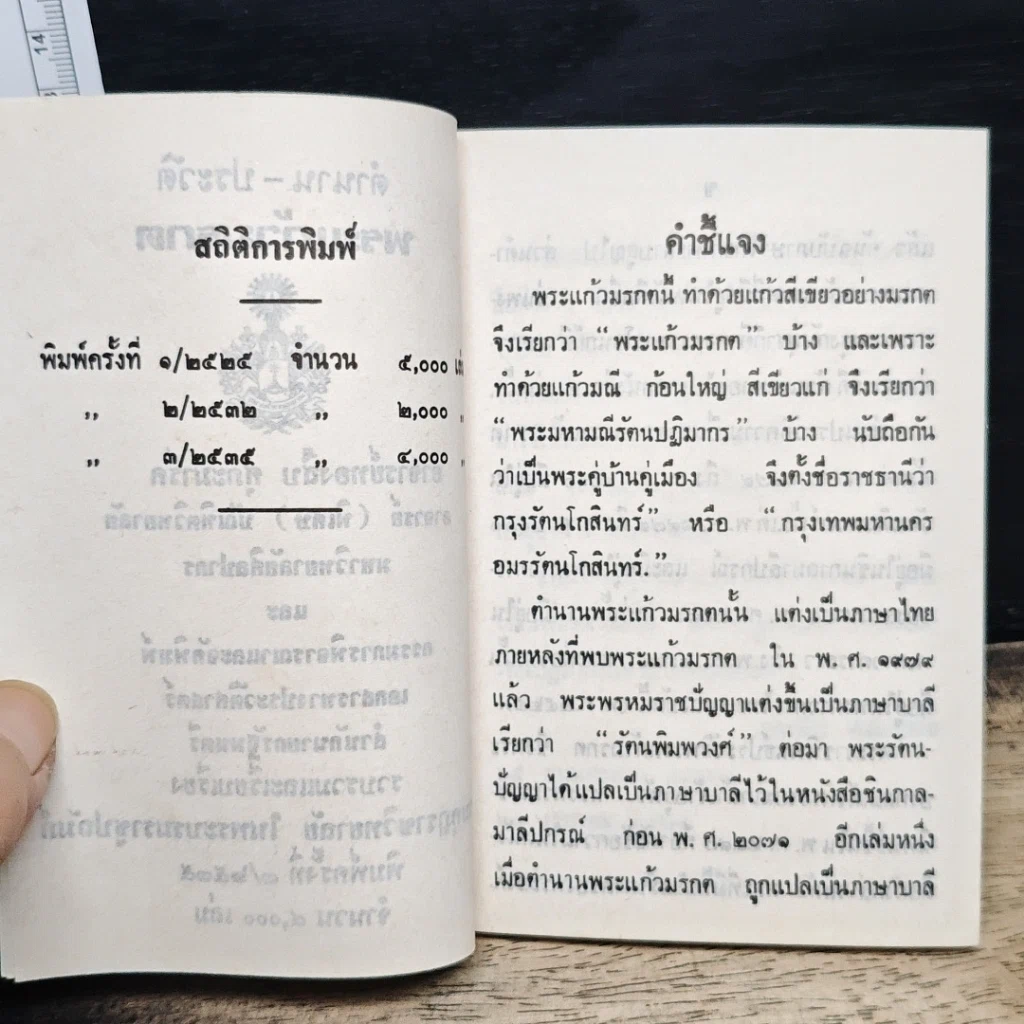 สถิติการพิมพ์
พิมพ์ครั้งที่ ๑/๒๕๒๕ จำนวน ๕,๐๐๐ เล่ม
,, ๒/๒๕๓๒ ,, ๒,๐๐๐ ,,
,, ๓/๒๕๓๕ ,, ๔,๐๐๐ ,,
คำชี้แจง
พระแก้วมรกตนี้ ทำด้วยแก้วสีเขียวอย่างมรกต
จึงเรียกว่า “ พระแก้วมรกต ” บ้าง และเพราะ
ทำด้วยแก้วมณี ก้อนใหญ่ สีเขียวแก่ จึงเรียกว่า
“ พระมหามณีรัตนปฏิมากร ” บ้าง นับถือกัน
ว่าเป็นพระคู่บ้านคู่เมือง จึงตั้งชื่อราชธานีว่า
กรุงรัตนโกสินทร์ ” หรือ “ กรุงเทพมหานคร
อมรรัตนโกสินทร์.”
ตำนานพระแก้วมรกตนั้น แต่งเป็นภาษาไทย
ภายหลังที่พบพระแก้วมรกต ใน พ. ศ. ๑๙๗๙
แล้ว พระพรหมราชปัญญาแต่งขึ้นเป็นภาษาบาลี
เรียกว่า “ รัตนพิมพวงศ์ ” ต่อมา พระรัตน-
ปัญญาได้แปลเป็นภาษาบาลีไว้ในหนังสือชินกาล-
มาลีปกรณ์ ก่อน พ. ศ. ๒๐๗๑ อีกเล่มหนึ่ง
เมื่อตำนานพระแก้วมรกต ถูกแปลเป็นภาษาบาลี